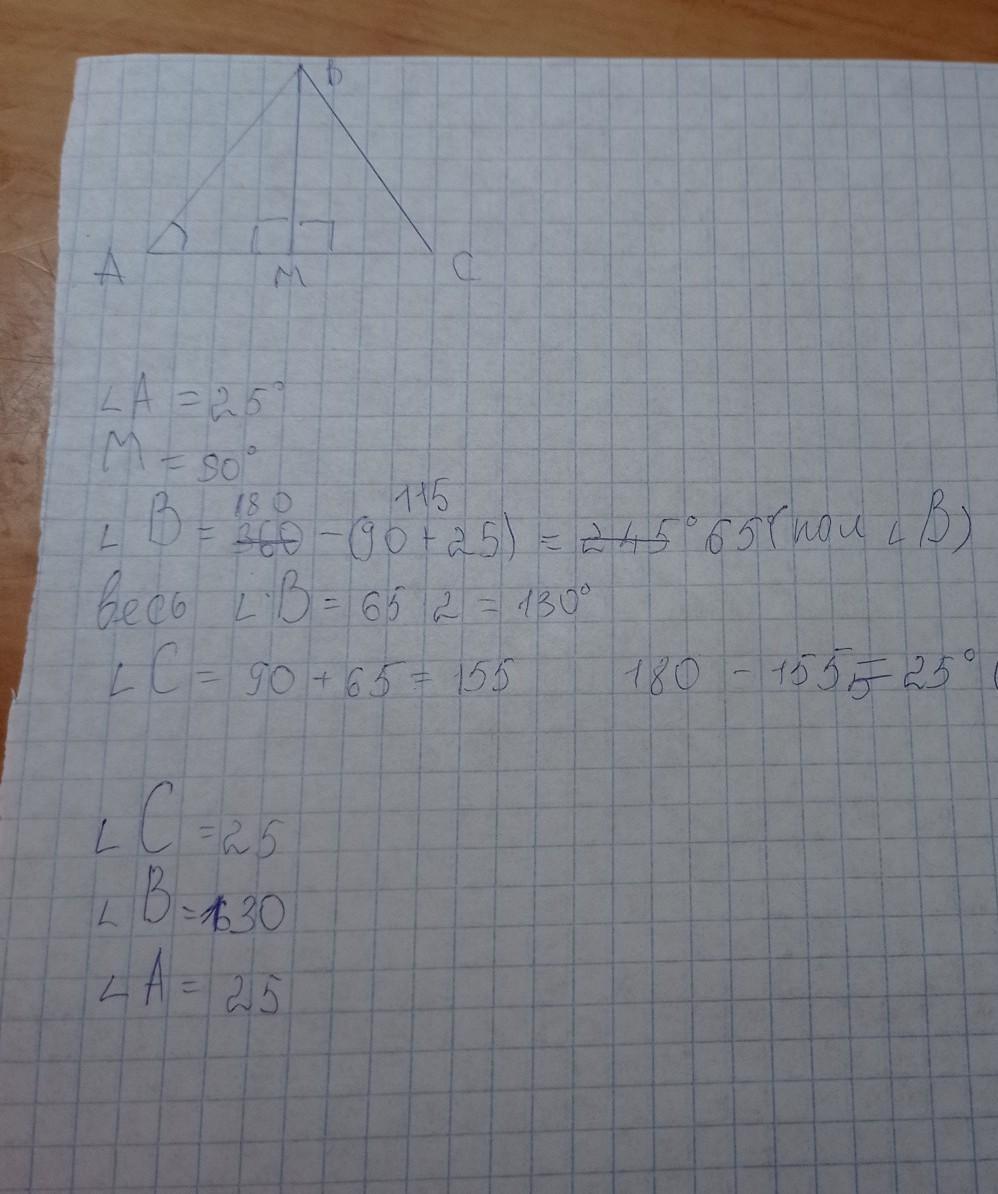 B
A M C
∠A = 25°
M = 90°
180 115
∠B = 360 - (90 + 25) = 245° 65 (пол ∠B)
весь ∠B = 65 2 = 130°
∠C = 90 + 65 = 155 180 - 155 = 25° (
∠C = 25
∠B = 130
∠A = 25